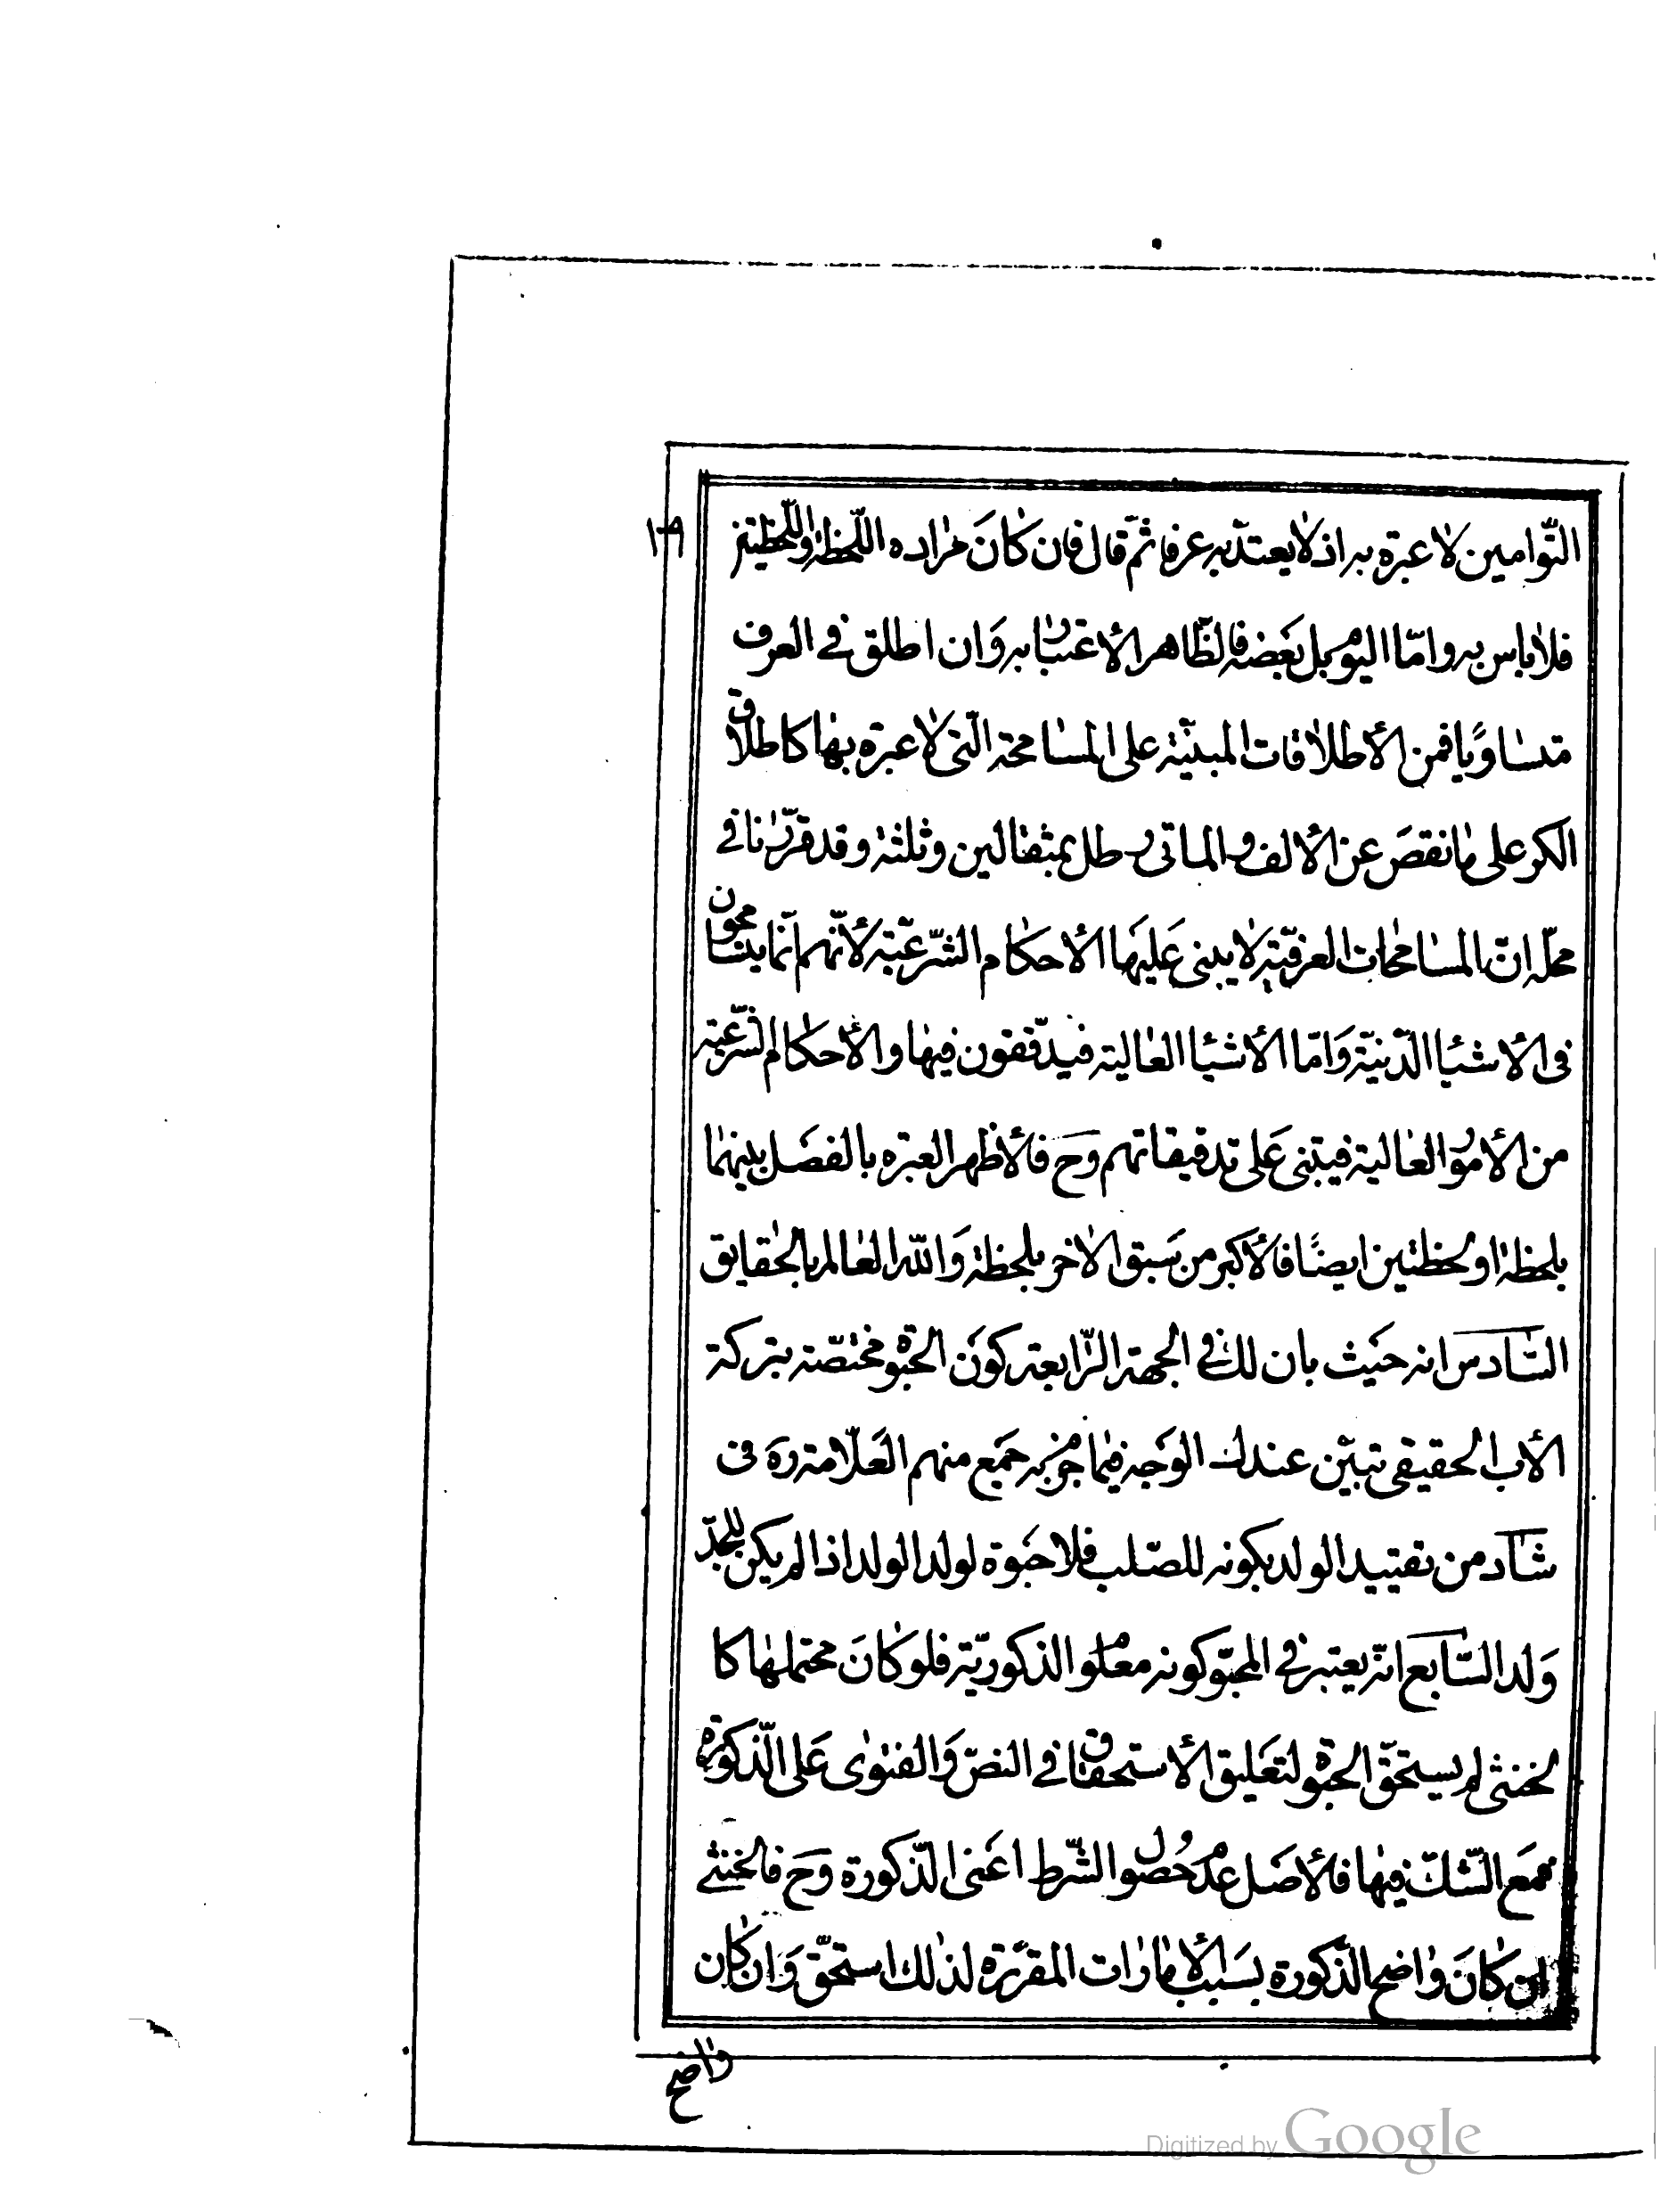 ١٠٩
التّوامين لا عبرة به اذ لا يعتدّ به عرفا ثمّ قال فان كان مراده اللّحظة واللّحظتين
فلا باس به وامّا اليوم بل بعضه فالظّاهر الأعتبار به وَان اطلق في العرف
متساويًا فمن الأطلاقات المبنيّة على المسامحة الّتى لا عبرة بها كاطلاق
الكر على ما نقصَ عن الألف والماتى رطل بمثقالين وثلثة وقد قرّرنا في
محلّه انّ المسامحات العرفيّة لا يبنى عَليهَا الأحكام الشّرعيّة لأنّهم انّما يتسامحون
فى الأشيا الدّنيّة وَامّا الأشيا العالية فيدقّقون فيها والأحكام الشّرعيّة
من الأمور العالية فيبتنى عَلى تدقيقاتهم وَح فالأظهر العبرة بالفصَل بينهما
بلحظة او لحظتين ايضًا فالأكبر من سَبق الاخر بلحظة وَالله العالم بالحقايق
السّادس انه حَيث بان لك في الجهة الرّابعة كون الحَبْوة مختصّة بتركة
الأب الحقيقى تبيّن عندك الوَجه فيما جزم به جَمع منهم العَلّامة ره فى
شاد من تقييد الولد بكونه للصّلب فلا حَبْوة لولد الولد اذا لم يكن للجدّ
وَلد السّابع انّه يعتبر في المحبوّ كونه معلوم الذكوريّة فلو كانَ محتملها كا
لخنثى لم يستحقّ الحبوة لتعَليق الأستحقاق في النصّ وَالفتوى عَلى الّذكورة
فمعَ الشّك فيها فالأصَل عدم حُصول الشّرط اعَنى الّذكورة وَح فالخنثى
ان كانَ واضح الّذكورة بسَبب الأمارات المقرّرة لذلك استحقّ وَان كان
واضح
Digitized by Google